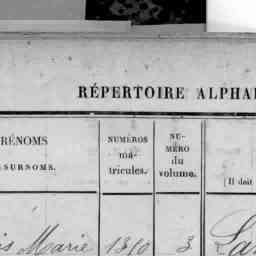 RÉPERTOIRE ALPHA
RÉNOMS
SURNOMS.
NUMÉROS
ma-
tricules.
NU-
MÉRO
du
volume.
[Il doit
is Marie 1310 3 La